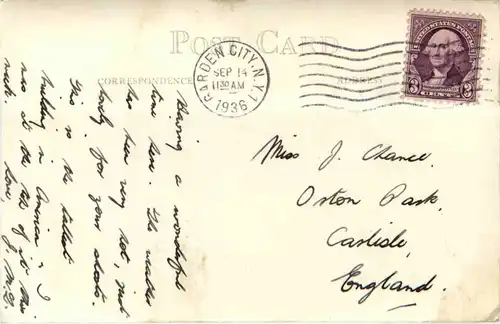 POST CARD
CORRESPONDENCE
ADDRESS
GARDEN CITY, N.Y. 1
SEP 14
11 30 AM
1936
UNITED STATES POSTAGE
3 3
Miss J. Chance.
Orton Park,
Carlisle,
England.
Having a wonderful
time here. The weather
has been very hot, just
lovely for your shorts.
This is the tallest
building in America & I
was at the top of it this
week. Love, J. M.